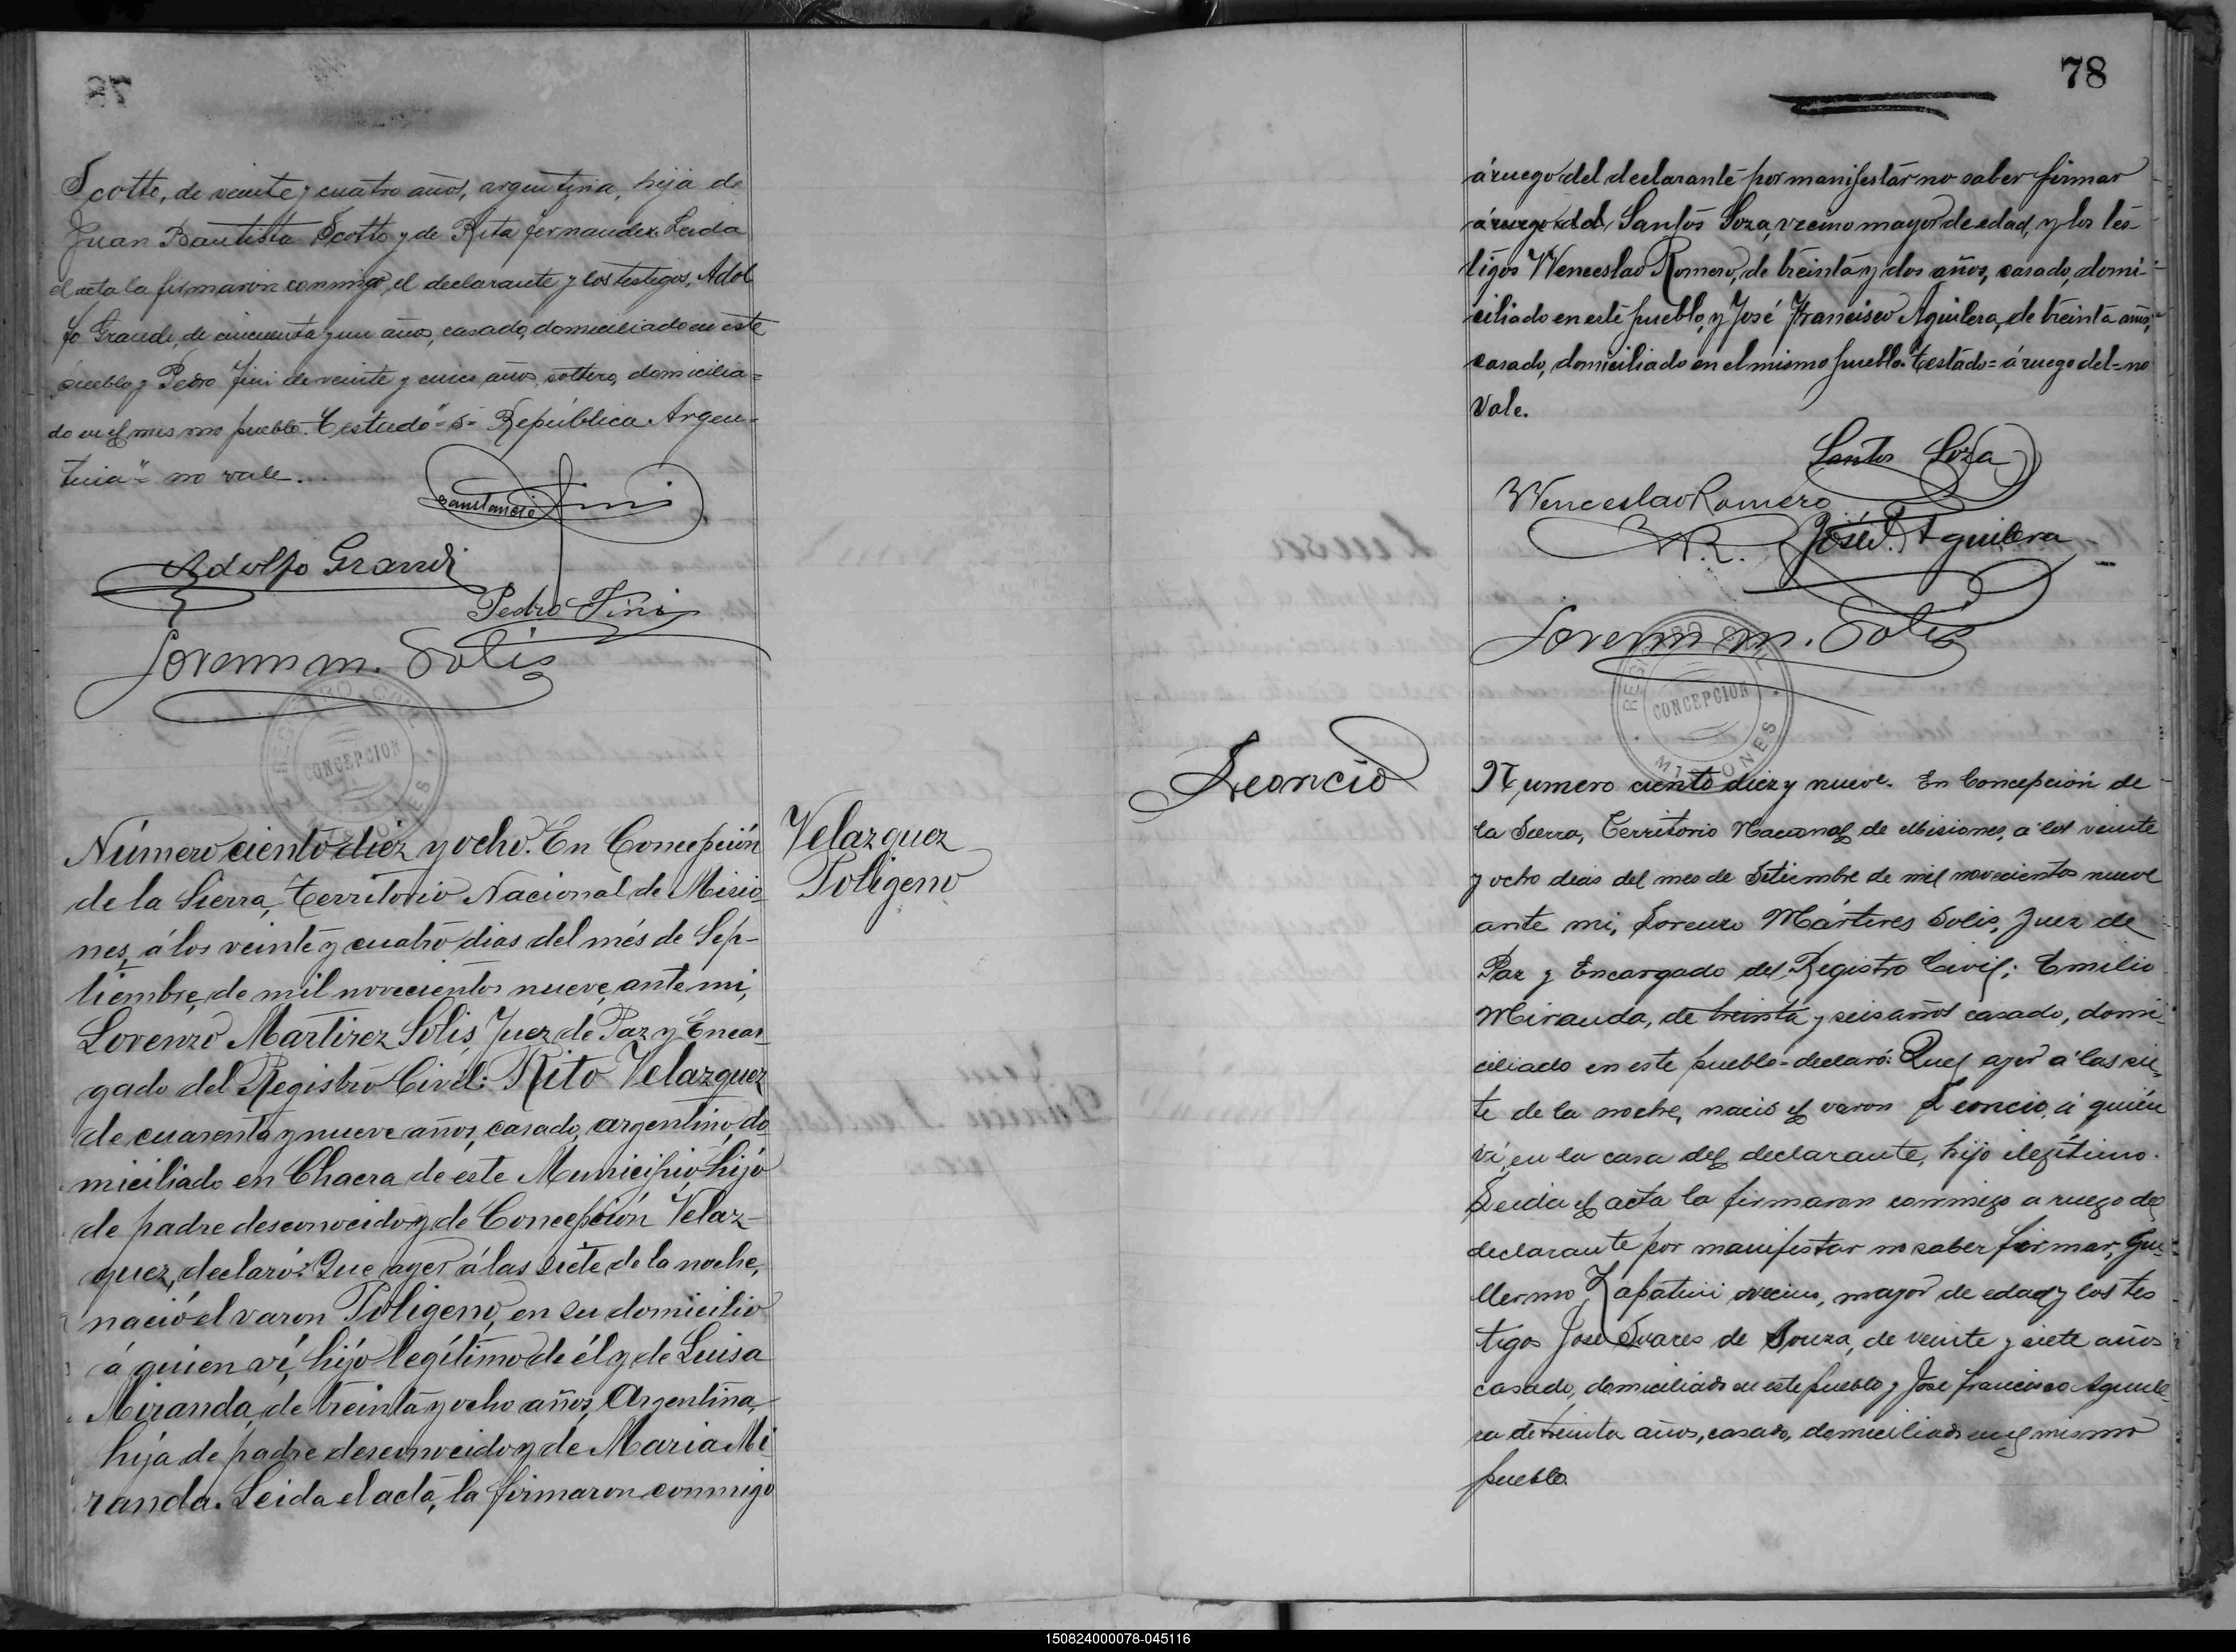 Scotto, de veinte y cuatro años, argentina, hija de
Juan Bautista Scotto y de Rita Fernandez. Leida
el acta la firmaron conmigo, el declarante y los testigos, Adol
fo Grandi, de cincuenta y un años, casado, domiciliado en este
pueblo y Pedro Fini de veinte y cinco años, soltero, domicilia=
do en el mismo pueblo. Testado "= República Argen=
tina"= no vale.
Fini
Adolfo Grandi
Pedro Fini
Lorenzo M. Solis
REGISTRO CIVIL
CONCEPCION
MISIONES
Número ciento diez y ocho. En Concepción
de la Sierra, Territorio Nacional de Misio
nes, á los veinte y cuatro dias del més de Sep-
tiembre, de mil novecientos nueve, ante mi,
Lorenzo Martirez Solis, Juez de Paz y Encar
gado del Registro Civil: Rito Velazquez
de cuarenta y nueve años, casado, argentino, do
miciliado en Chacra de este Municipio, hijo
de padre desconocido y de Concepción Velaz-
quez, declaró: Que ayer á las siete de la noche,
nació el varon Poligeno, en su domicilio
á quien ví, hijo legítimo de él y de Luisa
Miranda, de treinta y ocho años, Argentina,
hija de padre desconocido y de Maria Mi
randa. Leida el acta, la firmaron conmigo
Velazquez
Poligeno
78
á ruego del declarante por manifestar no saber firmar
á ruego del, Santos Soza, vecino mayor de edad, y los tes-
tigos Wenceslao Romero, de treinta y dos años, casado, domi-
ciliado en este pueblo, y José Francisco Aguilera, de treinta años,
casado, domiciliado en el mismo pueblo. Testado= á ruego del= no
Vale.
Santos Soza
Wenceslao Romero
W.R. José F. Aguilera
Lorenzo M. Solis
REGISTRO CIVIL
CONCEPCION
MISIONES
Leoncio
Numero ciento diez y nueve. En Concepción de
la Sierra, Territorio Nacional de Misiones, a los veinte
y ocho dias del mes de Setiembre de mil novecientos nueve
ante mi, Lorenzo Mártires Solis, Juez de
Paz y Encargado del Registro Civil: Emilio
Miranda, de treinta y seis años casado, domi-
ciliado en este pueblo-declaró: Que, ayer á las sie-
te de la noche, nació el varon Leoncio, á quién
ví, en la casa del declarante, hijo ilegítimo.
Leida el acta la firmaron conmigo a ruego del
declarante por manifestar no saber firmar, Gui-
llermo Zapatini vecino, mayor de edad y los tes
tigos José Suares de Souza, de veinte y siete años
casado, domiciliado en este pueblo y José Francisco Aguile-
ra de treinta años, casado, domiciliado en el mismo
pueblo.
150824000078-045116